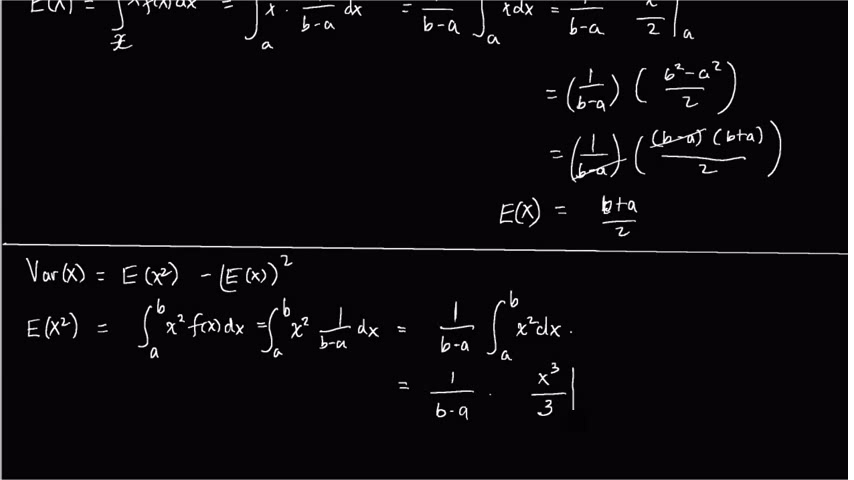 E(X) = ∫ x f(x) dx = ∫ₐ x · 1/(b-a) dx = 1/(b-a) ∫ₐ x dx = 1/(b-a) x/2 |ₐ
x
= (1/(b-a)) ((b²-a²)/2)
= (1/(b-a)) ((b-a)(b+a)/2)
E(X) = (b+a)/2
Var(X) = E(X²) - (E(X))²
E(X²) = ∫ₐᵇ x² f(x) dx = ∫ₐᵇ x² 1/(b-a) dx = 1/(b-a) ∫ₐᵇ x² dx.
= 1/(b-a) · x³/3 |